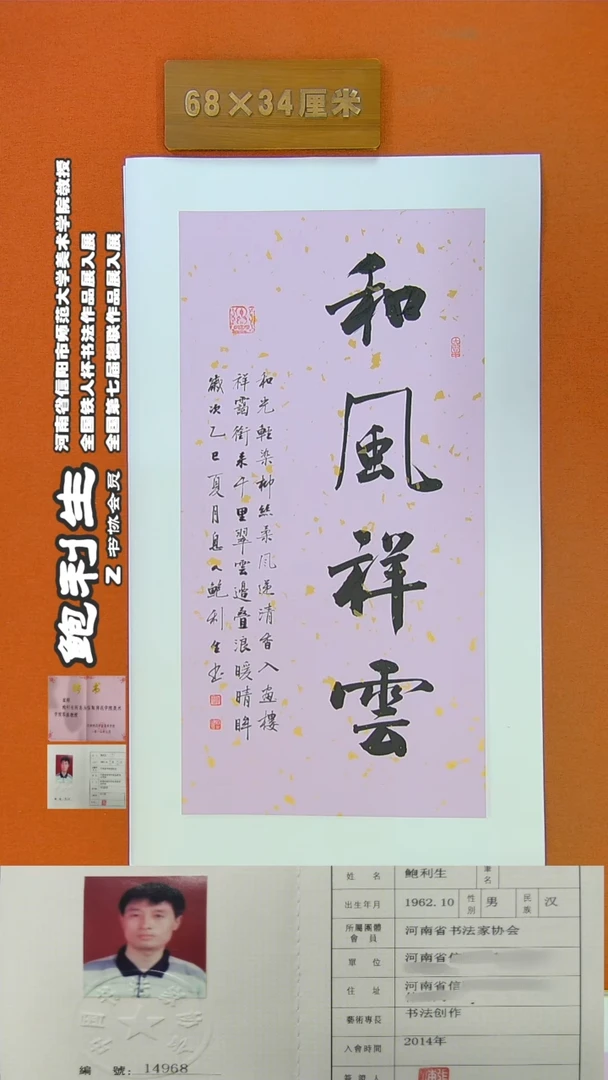 68×34厘米
和風祥雲
和光輕染柳絲柔風遞清香入畫樓
祥靄銜來千里翠雲邊疊浪暖晴眸
歲次乙巳夏月息人鮑利生書
河南省信阳市师范大学美术学院教授
全国铁人杯书法作品展入展
全国第七届楹联作品展入展
鲍利生
Z 书协会员
姓 名 鲍利生
出生年月 1962.10 性别 男 民族 汉
所屬團體會員 河南省书法家协会
單 位 河南省
住 址 河南省信
藝術專長 书法创作
入會時間 2014年
簽證人
編 號: 14968